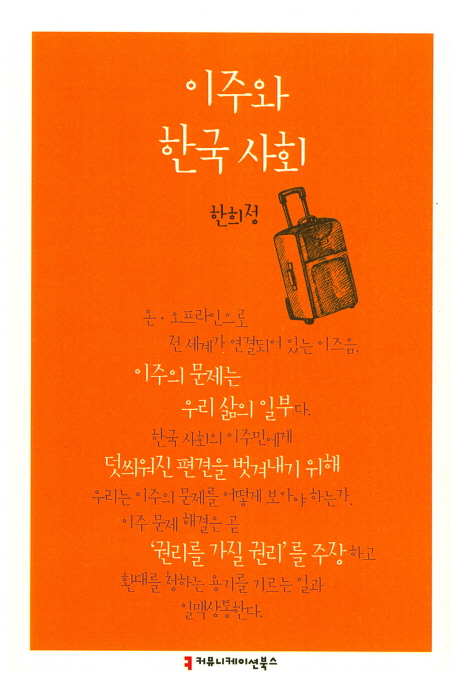 이주와
한국 사회
한희정
온·오프라인으로
전 세계가 연결되어 있는 이즈음,
이주의 문제는
우리 삶의 일부다.
한국 사회의 이주민에게
덧씌워진 편견을 벗겨내기 위해
우리는 이주의 문제를 어떻게 보아야 하는가.
이주 문제 해결은 곧
‘권리를 가질 권리’를 주장하고
환대를 청하는 용기를 기르는 일과
일맥상통한다.
커뮤니케이션북스